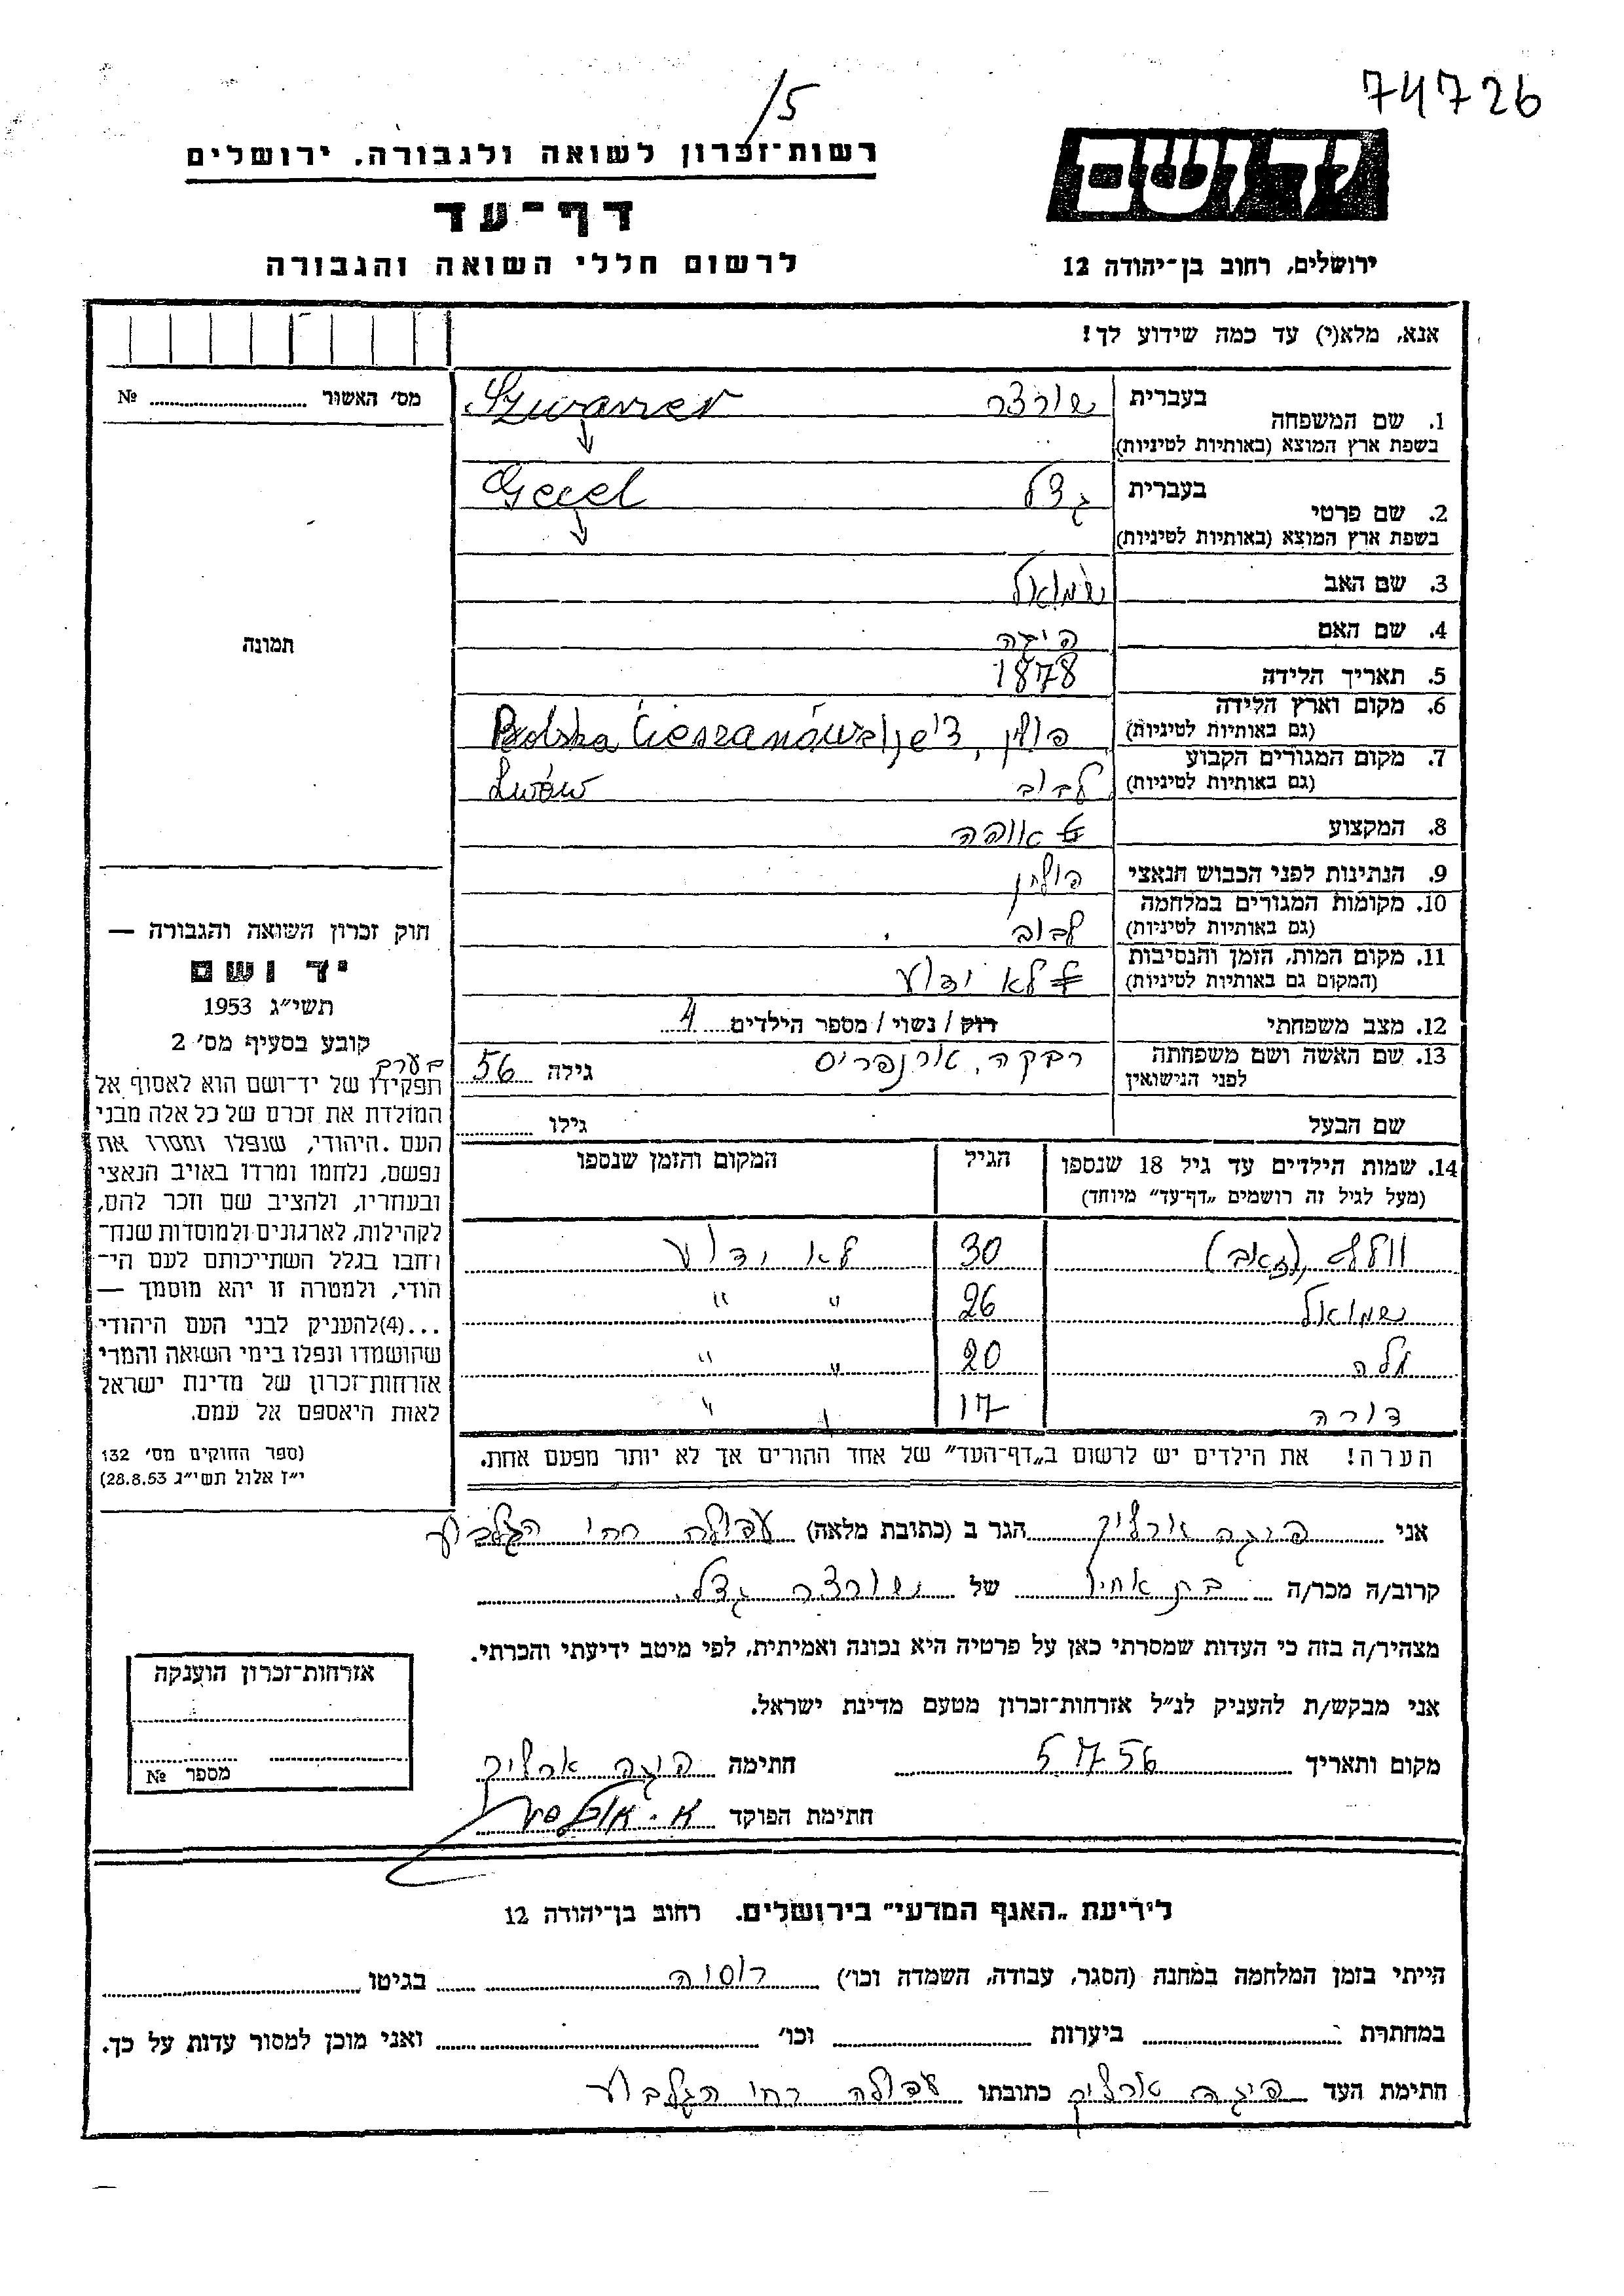 74726
/5
ידושם
רשות-זכרון לשואה ולגבורה. ירושלים
דף-עד
ירושלים, רחוב בן-יהודה 12
לרשום חללי השואה והגבורה
אנא, מלא(י) עד כמה שידוע לך!
מס׳ האשור № ..........
1. שם המשפחה בעברית שורצר Szwarzer
בשפת ארץ המוצא (באותיות לטיניות)
2. שם פרטי בעברית גצל Gecel
בשפת ארץ המוצא (באותיות לטיניות)
3. שם האב שמואל
4. שם האם
תמונה
5. תאריך הלידה 1878
6. מקום וארץ הלידה פולין, Polska Cieszanów
(גם באותיות לטיניות)
7. מקום המגורים הקבוע לבוב Lwów
(גם באותיות לטיניות)
8. המקצוע אופה
9. הנתינות לפני הכבוש הנאצי פולין
10. מקומות המגורים במלחמה לבוב
(גם באותיות לטיניות)
11. מקום המות, הזמן והנסיבות לא ידוע
(המקום גם באותיות לטיניות)
12. מצב משפחתי רוק / נשוי / מספר הילדים 4
13. שם האשה ושם משפחתה לפני הנישואין רבקה, גילה 56 בערך
שם הבעל גילו ..........
14. שמות הילדים עד גיל 18 שנספו הגיל המקום והזמן שנספו
(מעל לגיל זה רושמים „דף-עד״ מיוחד)
וולף (זאב) 30 לא ידוע
שמואל 26 " "
20 " "
דורה 17 "
הערה! את הילדים יש לרשום ב„דף-העד״ של אחד ההורים אך לא יותר מפעם אחת.
חוק זכרון השואה והגבורה —
יד ושם
תשי״ג 1953
קובע בסעיף מס׳ 2
תפקידו של יד-ושם הוא לאסוף אל
המולדת את זכרם של כל אלה מבני
העם היהודי, שנפלו ומסרו את
נפשם, נלחמו ומרדו באויב הנאצי
ובעוזריו, ולהציב שם וזכר להם,
לקהילות, לארגונים ולמוסדות שנח-
רחבו בגלל השתייכותם לעם הי-
הודי, ולמטרה זו יהא מוסמך —
...(4)להעניק לבני העם היהודי
שהושמדו ונפלו בימי השואה והמרי
אזרחות-זכרון של מדינת ישראל
לאות היאספם אל עמם.
(ספר החוקים מס׳ 132
י״ז אלול תשי״ג 28.8.53)
אני פיגה הגר ב (כתובת מלאה) עפולה רח׳ הגלבוע
קרוב/ה מכר/ה בת אחיו של שורצר גצל
מצהיר/ה בזה כי העדות שמסרתי כאן על פרטיה היא נכונה ואמיתית, לפי מיטב ידיעתי והכרתי.
אני מבקש/ת להעניק לנ״ל אזרחות-זכרון מטעם מדינת ישראל.
מקום ותאריך 5.7.56 חתימה פיגה
חתימת הפוקד
אזרחות-זכרון הוענקה
מספר №
לידיעת „האגף המדעי״ בירושלים. רחוב בן-יהודה 12
הייתי בזמן המלחמה במחנה (הסגר, עבודה, השמדה וכו׳) רוסיה בגיטו ..........
במחתרת .......... ביערות .......... וכו׳ .......... ואני מוכן למסור עדות על כך.
חתימת העד פיגה כתובתו עפולה רח׳ הגלבוע